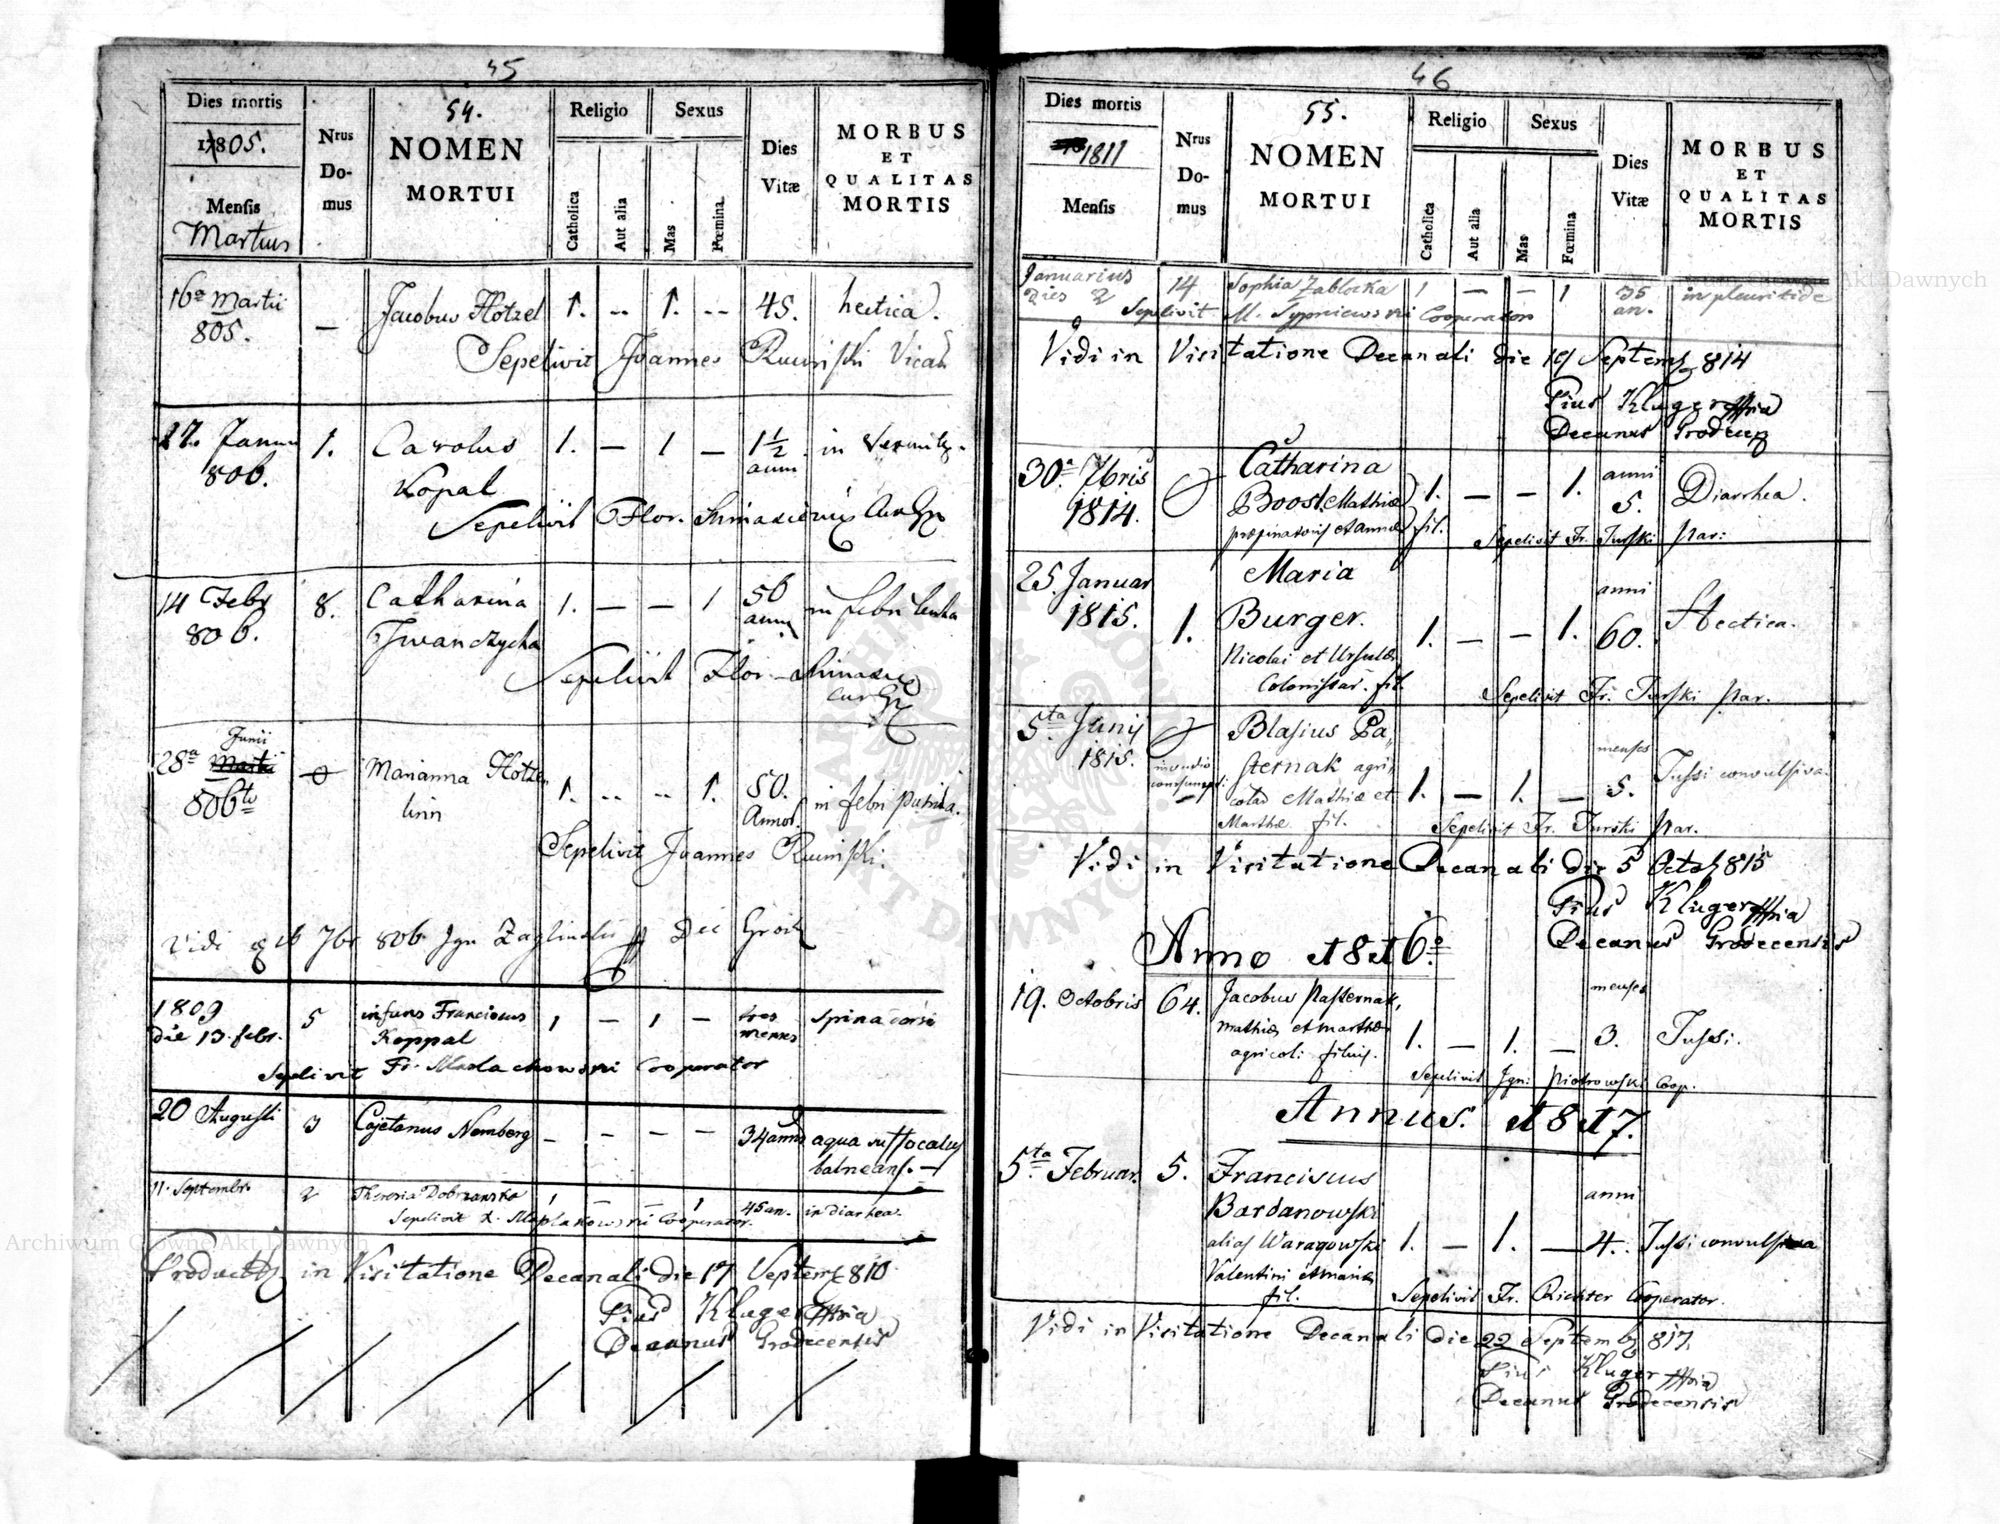 45
Dies mortis
1805.
Mensis
Martius
Nrus
Do-
mus
54.
NOMEN
MORTUI
Religio
Catholica
Aut alia
Sexus
Mas
Fœmina.
Dies
Vitæ
MORBUS
ET
QUALITAS
MORTIS
16a Martii — Jacobus Hotzel 1. -- 1. -- 45. hectica.
805.
Sepelivit Joannes Vicar
27. Janu 1. Carolus 1. — 1 — 1½ in
806. anni
Kopal
Sepelivit Flor.
14 Feb 8. Catharina 1. — — 1 56 in febri lenta
806. Iwanczycha
Sepelivit Flor.
Junii
28a Martii Marianna 1. -- -- 1. 50. in febri putrida.
806to Annor.
Sepelivit Joannes
Vidi 7br 806 Ign
1809 5 infans Franciscus 1 — 1 — tres spina dorsi
die 13. febr. Koppal menses
Sepelivit Fr. Malachowski Cooperator
20 Augusti 3 Cajetanus Nemberg — — — — 34 anno aqua suffocatus
balneans. —
11. Septembr. 2 Theresia Dobrzanska 1 — — 1 45 an. in diarhea.
Sepelivit Cooperator.
in Visitatione Decanali die 17 Septemb 810
Pius Kluger
Decanus Grodecensis
46
Dies mortis
1811
Mensis
Nrus
Do-
mus
55.
NOMEN
MORTUI
Religio
Catholica
Aut alia
Sexus
Mas
Fœmina
Dies
Vitæ
MORBUS
ET
QUALITAS
MORTIS
Januarius 14 Sophia Zablocka 1 — — 1 35 in pleuritide
Dies 2 an.
Sepelivit M. Sypniewski Cooperator
Vidi in Visitatione Decanali die 19 Septemb 814
Pius Kluger
Decanus
30a 7bris Catharina anni
1814. Boost Mathiæ 1. — — 1. 5. Diarrhea.
propinatoris et annæ fil.
Sepelivit Fr. Turski Par:
25. Januar Maria anni
1815. 1. Burger. 1. — — 1. 60. Hectica.
Nicolai et Ursulæ
Colonistar. fil.
Sepelivit Fr. Turski Par.
5ta Junij Blasius Pa„ menses
1815. sternak agri, 1. — 1. — 5. Tussi convulsiva.
colar Mathiæ et
Marthæ fil.
Sepelivit Fr. Turski Par.
Vidi in Visitatione Decanali die 5 Octob 815
Pius Kluger
Decanus Grodecensis
Anno 1816o.
menses
19. Octobris 64. Jacobus Pasternak,
Mathiæ et Marthæ 1. — 1. — 3. Tussi.
agricol: filius.
Sepelivit Ign: Piotrowski Coop.
Annus. 1817.
5ta Februar. 5. Franciscus anni
Bardanowski
alias Waragowski 1. — 1. — 4. Tussi convulsiva
Valentini et Mariæ
fil.
Sepelivit Fr. Richter Cooperator.
Vidi in Visitatione Decanali die 22 Septemb 817.
Pius Kluger
Decanus Grodecensis
Archiwum Główne Akt Dawnych
Archiwum Główne Akt Dawnych